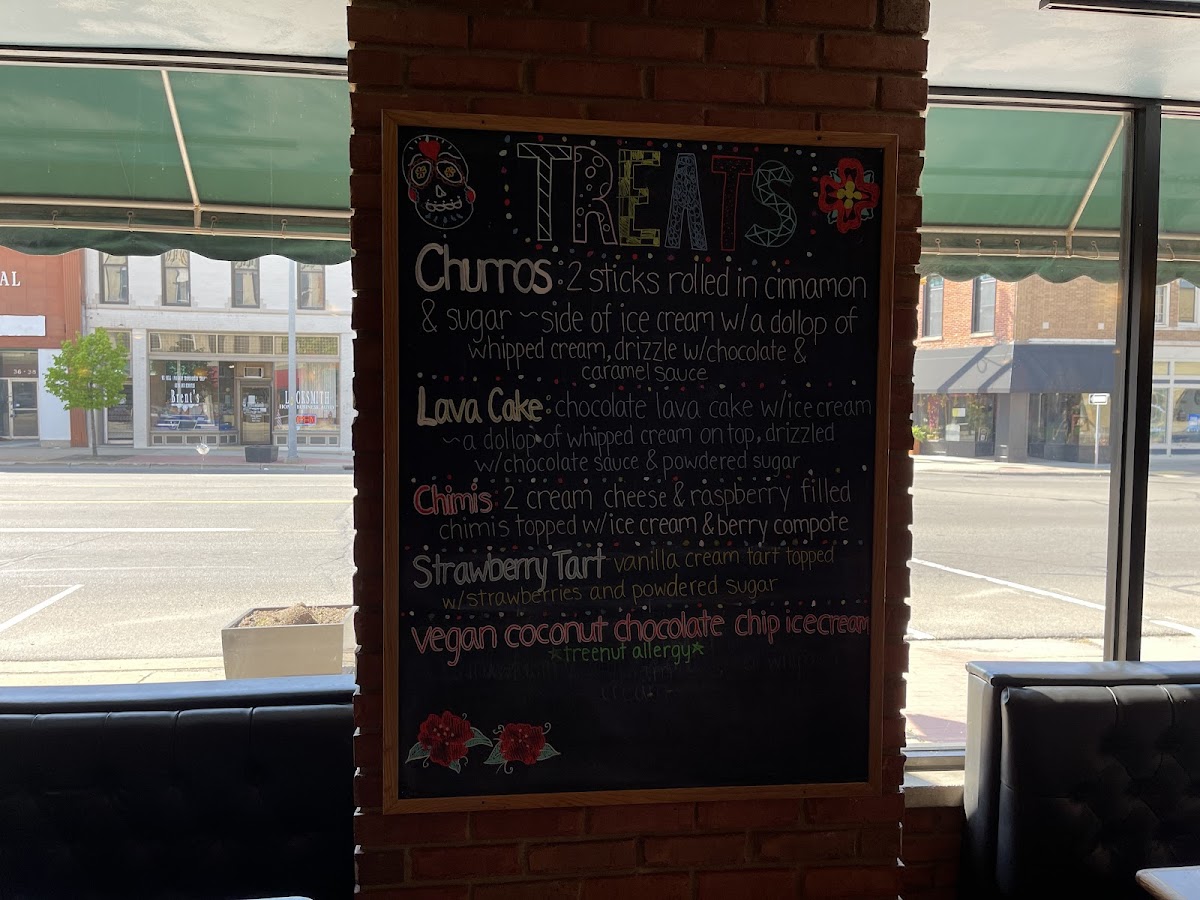 TREATS
Churros: 2 sticks rolled in cinnamon
& sugar ~ side of ice cream w/a dollop of
whipped cream, drizzle w/chocolate &
caramel sauce
Lava Cake: chocolate lava cake w/ice cream
~a dollop of whipped cream on top, drizzled
w/chocolate sauce & powdered sugar
Chimis: 2 cream cheese & raspberry filled
chimis topped w/ice cream & berry compote
Strawberry Tart vanilla cream tart topped
w/strawberries and powdered sugar
vegan coconut chocolate chip ice cream
*treenut allergy*
AL
36-38
Brent's
LOCKSMITH